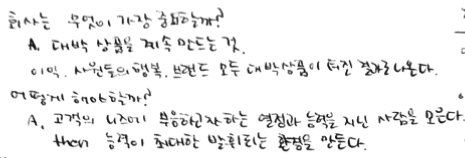 회사는 무엇이 가장 중요할까?
A. 대박 상품을 계속 만드는 것.
이익, 사원들의 행복, 브랜드 모두 대박상품이 터진 결과로 나온다.
어떻게 해야할까?
A. 고객의 니즈에 부응하고자 하는 열정과 능력을 지닌 사람을 모은다.
then 능력이 최대한 발휘되는 환경을 만든다.